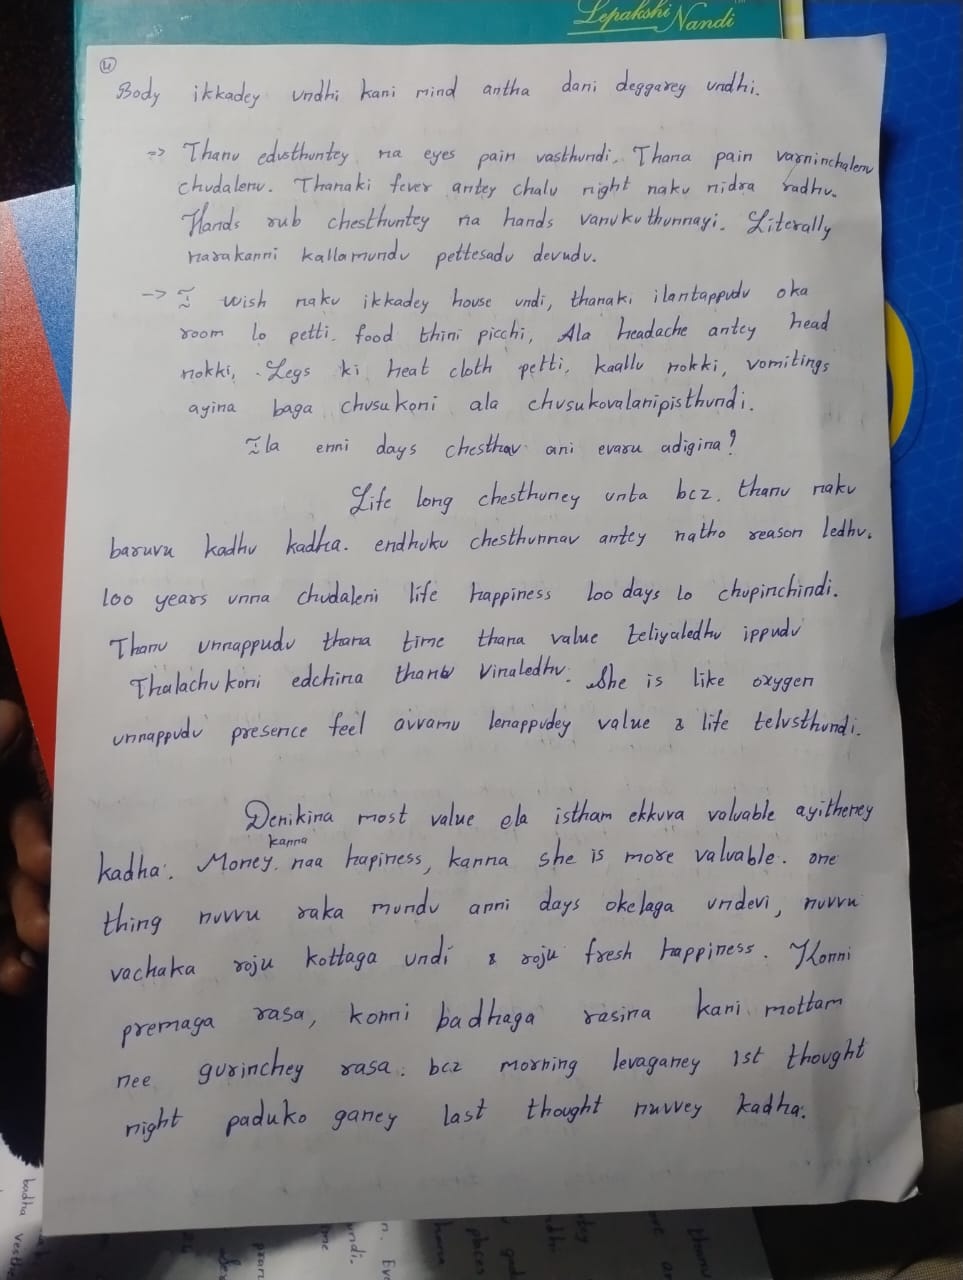 Lepakshi Nandi
4
Body ikkadey undhi kani mind antha dani deggarey undhi.
=> Thanu edusthuntey na eyes pain vasthundi. Thana pain varninchalenu
chudalenu. Thanaki fever antey chalu night naku nidra radhu.
Hands rub chesthuntey na hands vanukuthunnayi. Literally
narakanni kallamundu pettesadu devudu.
-> I wish naku ikkadey house undi, thanaki ilantappudu oka
room lo petti, food thini picchi, Ala headache antey head
nokki, Legs ki heat cloth petti, kaallu nokki, vomitings
ayina baga chusukoni ala chusukovalanipisthundi.
Ila enni days chesthav ani evaru adigina?
Life long chesthuney unta bcz. thanu naku
baruvu kadhu kadha. endhuku chesthunnav antey natho reason ledhu.
100 years unna chudaleni life happiness 100 days lo chupinchindi.
Thanu unnappudu thana time thana value teliyaledhu ippudu
Thalachukoni edchina thanu vinaledhu. She is like oxygen
unnappudu presence feel avvamu lenappudey value & life telusthundi.
Denikina most value ela istham ekkuva valuable ayitheney
kanna
kadha. Money. naa hapiness, kanna she is more valuable. one
thing nuvvu raka mundu anni days okelaga undevi, nuvvu
vachaka roju kottaga undi & roju fresh happiness. Konni
premaga rasa, konni badhaga rasina kani mottam
nee gurinchey rasa. bcz morning levaganey 1st thought
night paduko ganey last thought nuvvey kadha.
badha